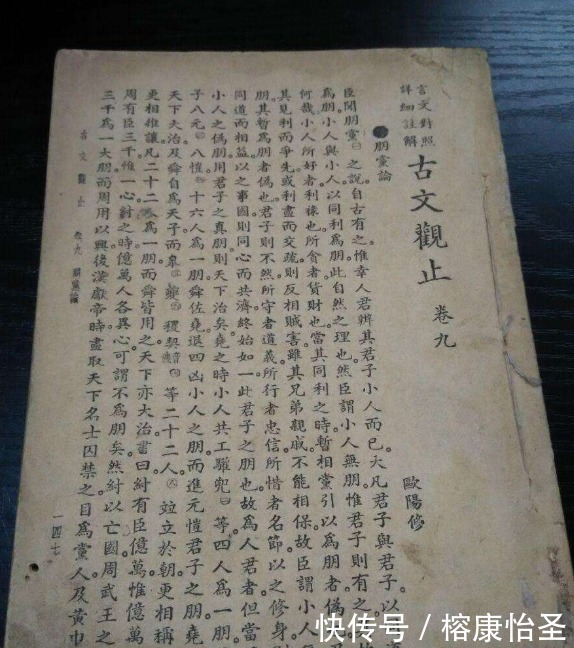 言文對照
詳細註解
古文觀止 卷九
朋黨論 歐陽修
臣聞朋黨㊀之說。自古有之。惟幸人君辨其君子小人而已。大凡君子與君子。以
為朋。小人與小人。以同利為朋。此自然之理也。然臣謂小人無朋。惟君子則有之。
何哉。小人所好者利祿也。所貪者貨財也。當其同利之時。暫相黨引以為朋者。偽也
其見利而爭先。或利盡而交疏。則反相賊害。雖其兄弟親戚。不能相保。故臣謂小人
朋。其暫為朋者偽也。君子則不然。所守者道義。所行者忠信。所惜者名節。以之修身。
同道而相益。以之事國。則同心而共濟。終始如一。此君子之朋也。故為人君者。但當
小人之偽朋。用君子之真朋。則天下治矣。堯之時。小人共工驩兜等四人為一朋。
子八元八愷十六人為一朋。舜佐堯退四凶小人之朋。而進元愷君子之朋。堯
天下大治。及舜自為天子。而皋夔稷契等二十二人。竝立於朝。更相稱
更相推讓。凡二十二人為一朋。而舜皆用之。天下亦大治。書曰紂有臣億萬。惟億萬
周有臣三千。惟一心。紂之時。億萬人各異心。可謂不為朋矣。然紂以亡國。周武王之
三千為一大朋。而周用以興。後漢獻帝時。盡取天下名士囚禁之。目為黨人。及黃巾
古文觀止 卷九 朋黨論 一四七
快传号 / 榕康怡圣